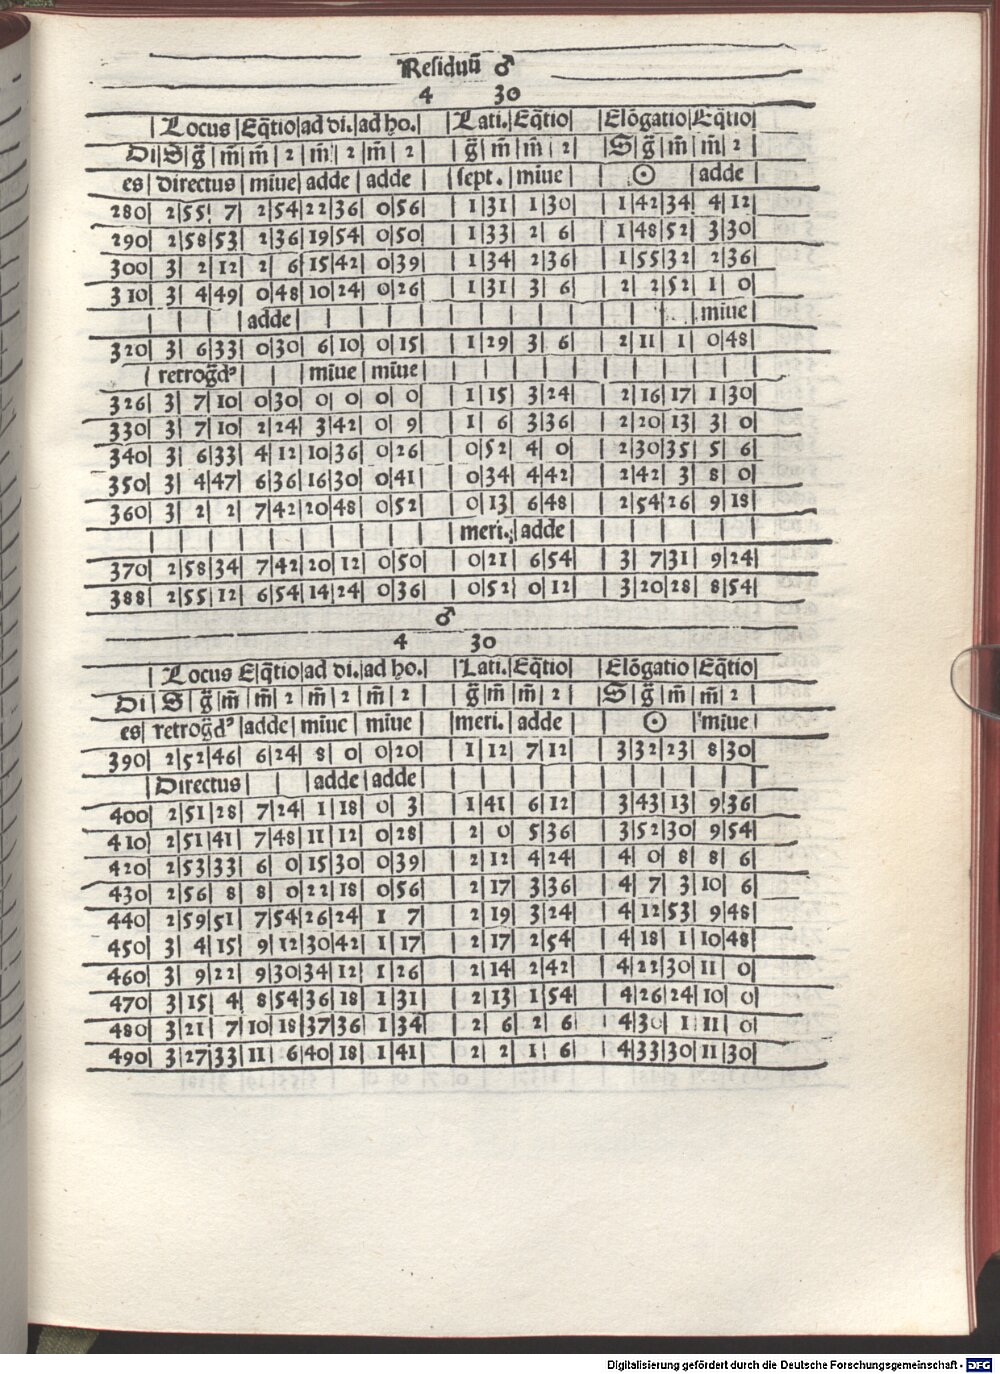 Residuū ♂
4 30
| Locus | Eq̄tio | ad di. | ad ho. | | Lati. | Eq̄tio | | Elōgatio | Eq̄tio |
Di | S | g̃ | m̃ | m̃ | 2 | m̃ | 2 | m̃ | 2 | | g̃ | m̃ | m̃ | 2 | | S | g̃ | m̃ | m̃ | 2
es | directus | miue | adde | adde | | sept. | miue | | ☉ | adde |
280 | 2 | 55 | 7 | 2 | 54 | 22 | 36 | 0 | 56 | | 1 | 31 | 1 | 30 | | 1 | 42 | 34 | 4 | 12
290 | 2 | 58 | 53 | 2 | 36 | 19 | 54 | 0 | 50 | | 1 | 33 | 2 | 6 | | 1 | 48 | 52 | 3 | 30
300 | 3 | 2 | 12 | 2 | 6 | 15 | 42 | 0 | 39 | | 1 | 34 | 2 | 36 | | 1 | 55 | 32 | 2 | 36
310 | 3 | 4 | 49 | 0 | 48 | 10 | 24 | 0 | 26 | | 1 | 31 | 3 | 6 | | 2 | 2 | 52 | 1 | 0
adde | miue
320 | 3 | 6 | 33 | 0 | 30 | 6 | 10 | 0 | 15 | | 1 | 29 | 3 | 6 | | 2 | 11 | 1 | 0 | 48
retrog̃dꝰ | miue | miue
326 | 3 | 7 | 10 | 0 | 30 | 0 | 0 | 0 | 0 | | 1 | 15 | 3 | 24 | | 2 | 16 | 17 | 1 | 30
330 | 3 | 7 | 10 | 2 | 24 | 3 | 42 | 0 | 9 | | 1 | 6 | 3 | 36 | | 2 | 20 | 13 | 3 | 0
340 | 3 | 6 | 33 | 4 | 12 | 10 | 36 | 0 | 26 | | 0 | 52 | 4 | 0 | | 2 | 30 | 35 | 5 | 6
350 | 3 | 4 | 47 | 6 | 36 | 16 | 30 | 0 | 41 | | 0 | 34 | 4 | 42 | | 2 | 42 | 3 | 8 | 0
360 | 3 | 2 | 2 | 7 | 42 | 20 | 48 | 0 | 52 | | 0 | 13 | 6 | 48 | | 2 | 54 | 26 | 9 | 18
meri. | adde
370 | 2 | 58 | 34 | 7 | 42 | 20 | 12 | 0 | 50 | | 0 | 21 | 6 | 54 | | 3 | 7 | 31 | 9 | 24
388 | 2 | 55 | 12 | 6 | 54 | 14 | 24 | 0 | 36 | | 0 | 52 | 0 | 12 | | 3 | 20 | 28 | 8 | 54
♂
4 30
| Locus | Eq̄tio | ad di. | ad ho. | | Lati. | Eq̄tio | | Elōgatio | Eq̄tio |
Di | S | g̃ | m̃ | m̃ | 2 | m̃ | 2 | m̃ | 2 | | g̃ | m̃ | m̃ | 2 | | S | g̃ | m̃ | m̃ | 2
es | retrog̃dꝰ | adde | miue | miue | | meri. | adde | | ☉ | miue |
390 | 2 | 52 | 46 | 6 | 24 | 8 | 0 | 0 | 20 | | 1 | 12 | 7 | 12 | | 3 | 32 | 23 | 8 | 30
Directus | adde | adde
400 | 2 | 51 | 28 | 7 | 24 | 1 | 18 | 0 | 3 | | 1 | 41 | 6 | 12 | | 3 | 43 | 13 | 9 | 36
410 | 2 | 51 | 41 | 7 | 48 | 11 | 12 | 0 | 28 | | 2 | 0 | 5 | 36 | | 3 | 52 | 30 | 9 | 54
420 | 2 | 53 | 33 | 6 | 0 | 15 | 30 | 0 | 39 | | 2 | 12 | 4 | 24 | | 4 | 0 | 8 | 8 | 6
430 | 2 | 56 | 8 | 8 | 0 | 22 | 18 | 0 | 56 | | 2 | 17 | 3 | 36 | | 4 | 7 | 3 | 10 | 6
440 | 2 | 59 | 51 | 7 | 54 | 26 | 24 | 1 | 7 | | 2 | 19 | 3 | 24 | | 4 | 12 | 53 | 9 | 48
450 | 3 | 4 | 15 | 9 | 12 | 30 | 42 | 1 | 17 | | 2 | 17 | 2 | 54 | | 4 | 18 | 1 | 10 | 48
460 | 3 | 9 | 22 | 9 | 30 | 34 | 12 | 1 | 26 | | 2 | 14 | 2 | 42 | | 4 | 22 | 30 | 11 | 0
470 | 3 | 15 | 4 | 8 | 54 | 36 | 18 | 1 | 31 | | 2 | 13 | 1 | 54 | | 4 | 26 | 24 | 10 | 0
480 | 3 | 21 | 7 | 10 | 18 | 37 | 36 | 1 | 34 | | 2 | 6 | 2 | 6 | | 4 | 30 | 1 | 11 | 0
490 | 3 | 27 | 33 | 11 | 6 | 40 | 18 | 1 | 41 | | 2 | 2 | 1 | 6 | | 4 | 33 | 30 | 11 | 30
Digitalisierung gefördert durch die Deutsche Forschungsgemeinschaft - DFG